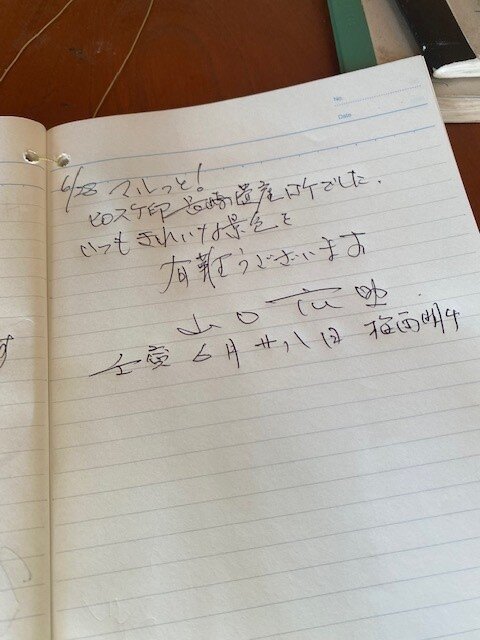 No.
Date
6/28 マルっと!
ヒロスケ印 長崎遺産ロケでした.
いつもきれいな景色を
有難うございます
山口広助
壬寅 6月廿八日 梅雨明け
す